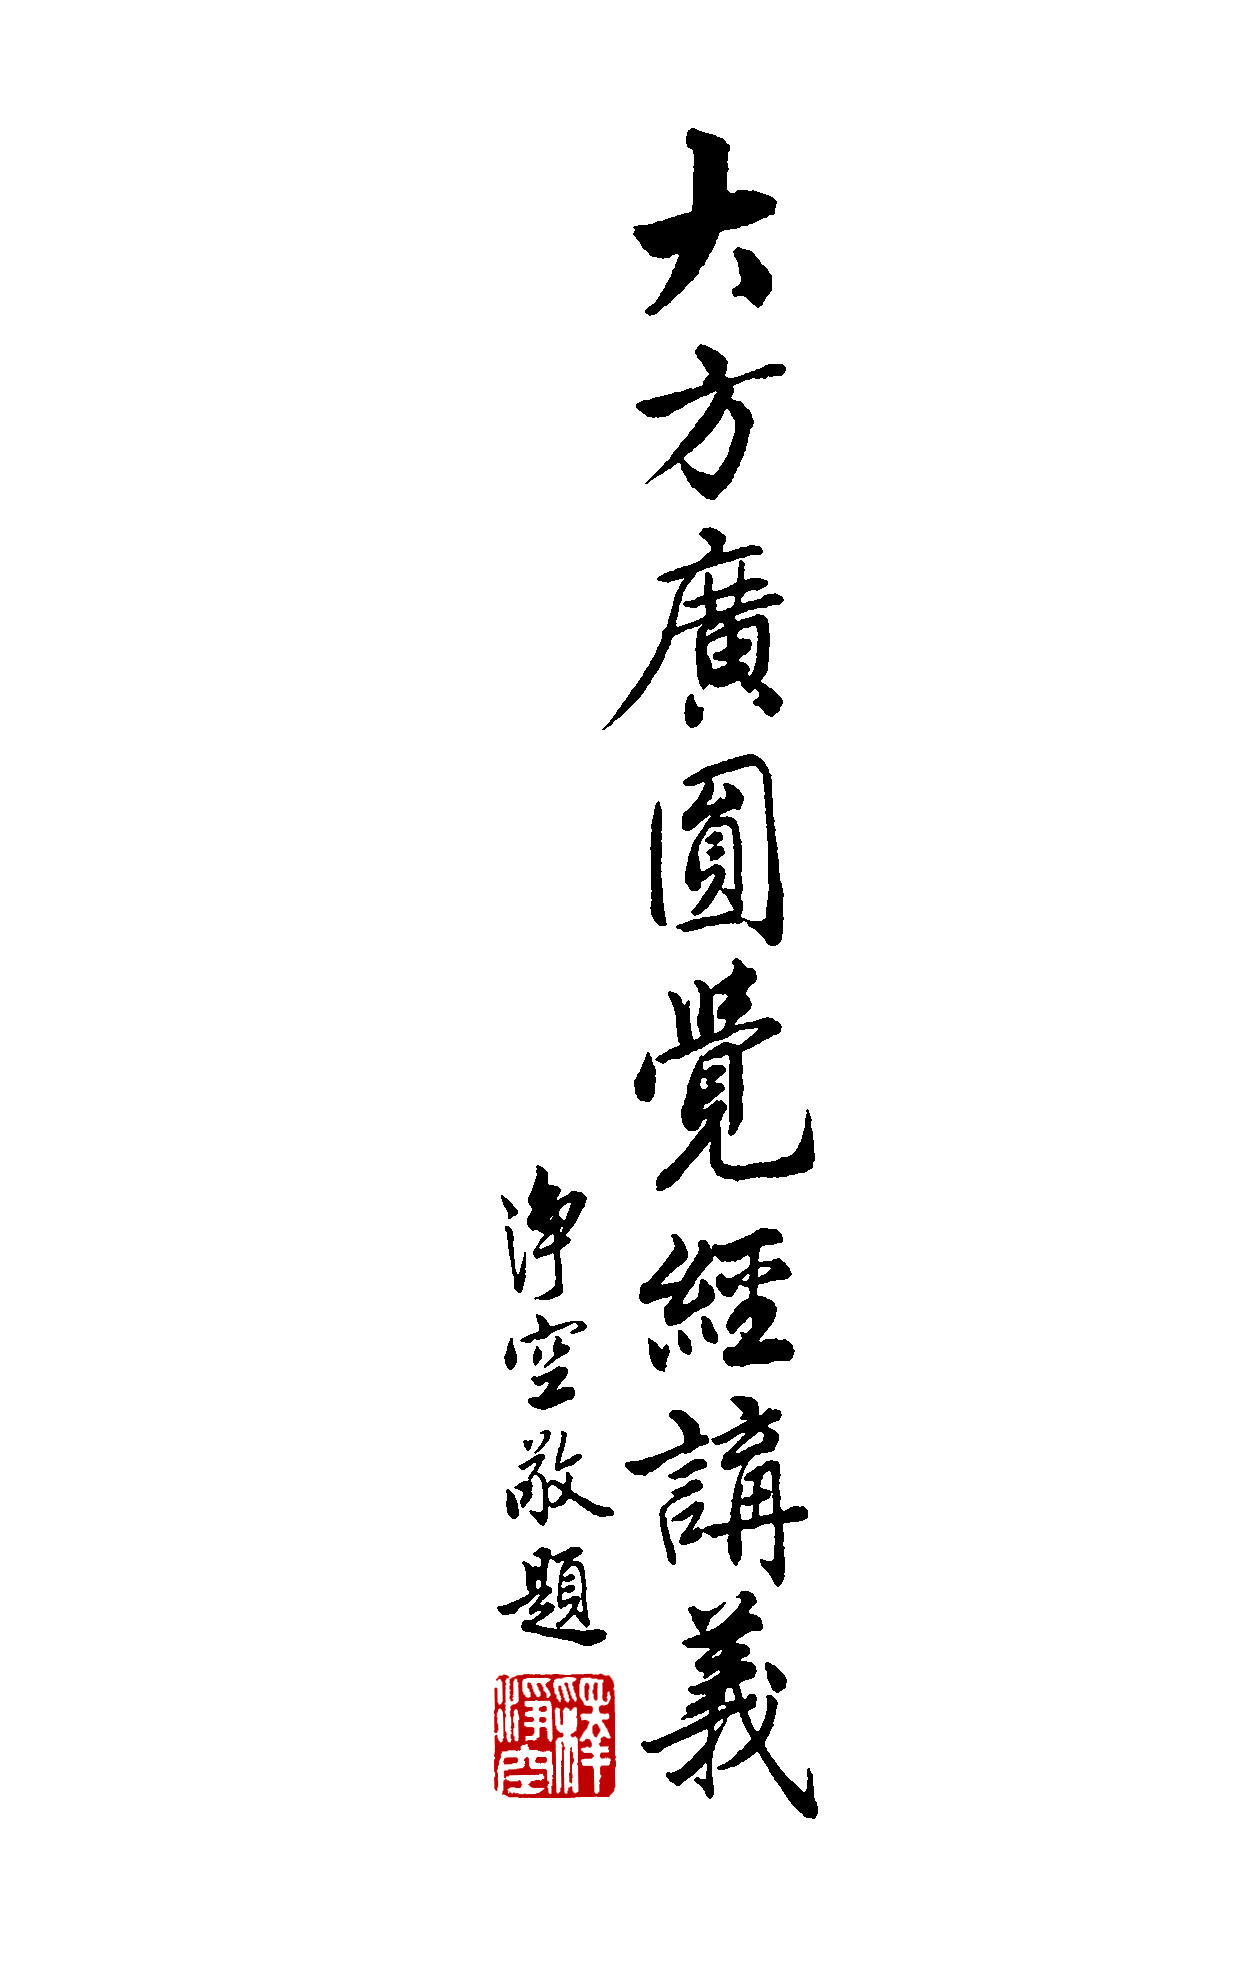 大方廣圓覺經講義
淨空敬題
釋淨空